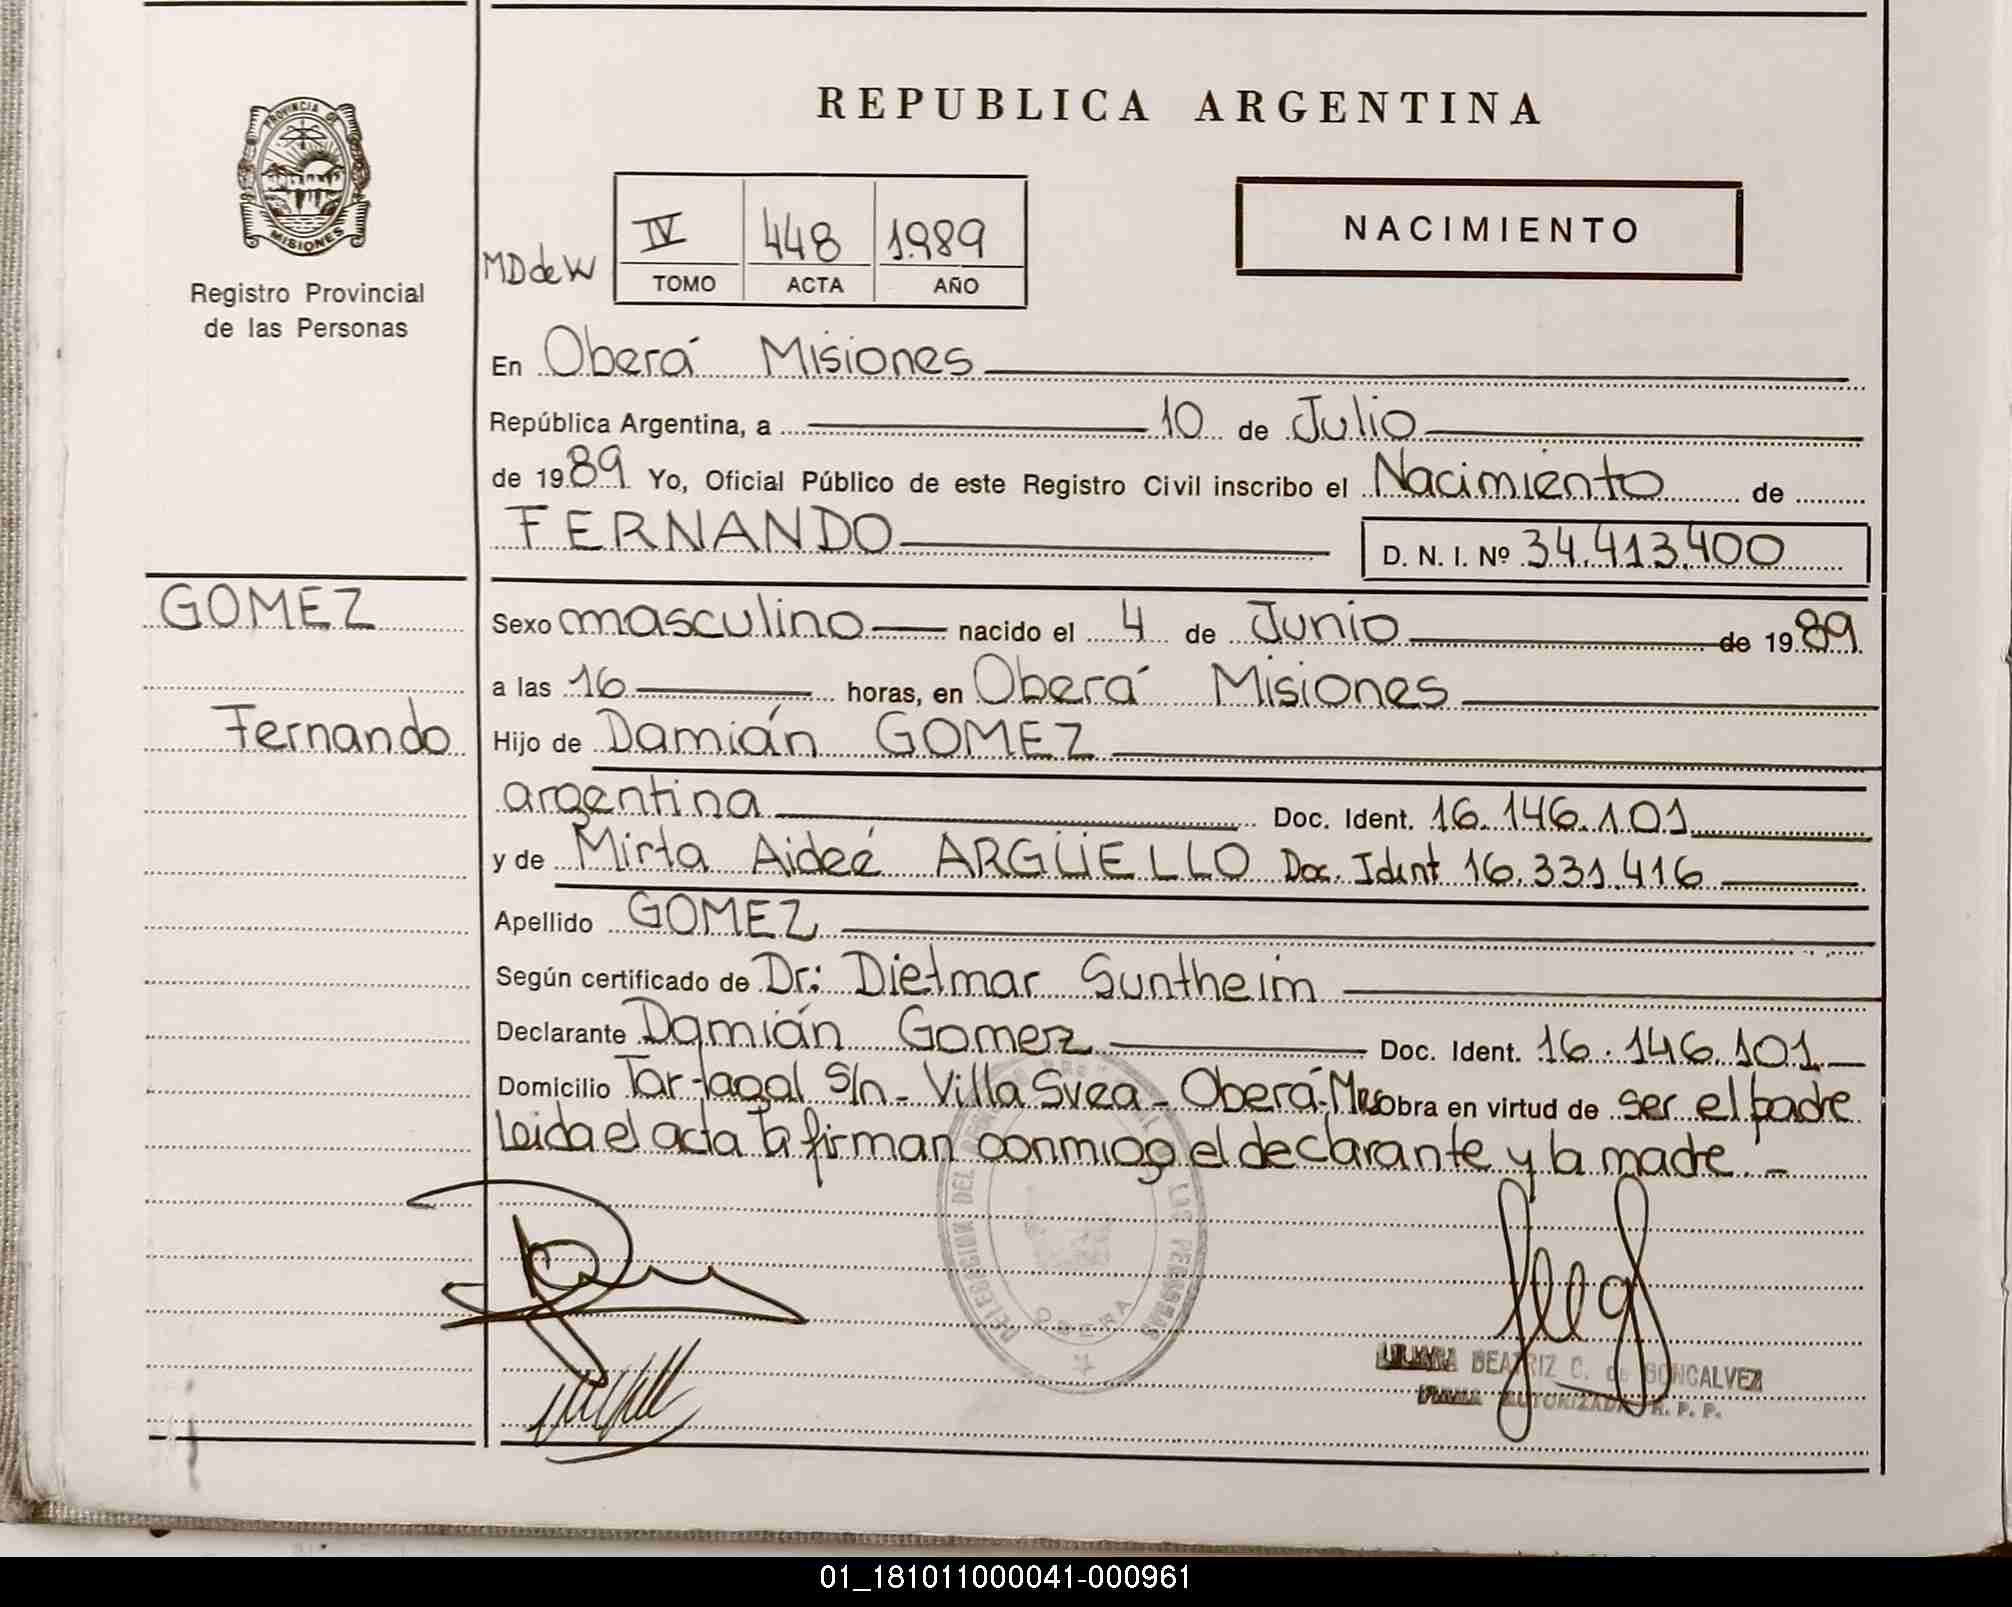 REPUBLICA ARGENTINA
PROVINCIA DE
MISIONES
Registro Provincial
de las Personas
NACIMIENTO
MD de W
IV 448 1989
TOMO ACTA AÑO
En Oberá Misiones
República Argentina, a 10 de Julio
de 1989 Yo, Oficial Público de este Registro Civil inscribo el Nacimiento de
FERNANDO D. N. I. Nº 34.413.400
GOMEZ
Fernando
Sexo masculino nacido el 4 de Junio de 1989
a las 16 horas, en Oberá Misiones
Hijo de Damián GOMEZ
argentina Doc. Ident. 16.146.101
y de Mirta Aideé ARGÜELLO Doc. Ident 16.331.416
Apellido GOMEZ
Según certificado de Dr: Dietmar Suntheim
Declarante Damián Gomez Doc. Ident. 16.146.101
Domicilio Tartagal S/n - Villa Svea - Oberá-Mnes obra en virtud de ser el padre
Leida el acta la firman conmigo el declarante y la madre.-
DELEGACION DEL LAS PERSONAS
OBERA
LILIANA BEATRIZ C. de GONCALVEZ
FIRMA AUTORIZADA R. P. P.
01_181011000041-000961